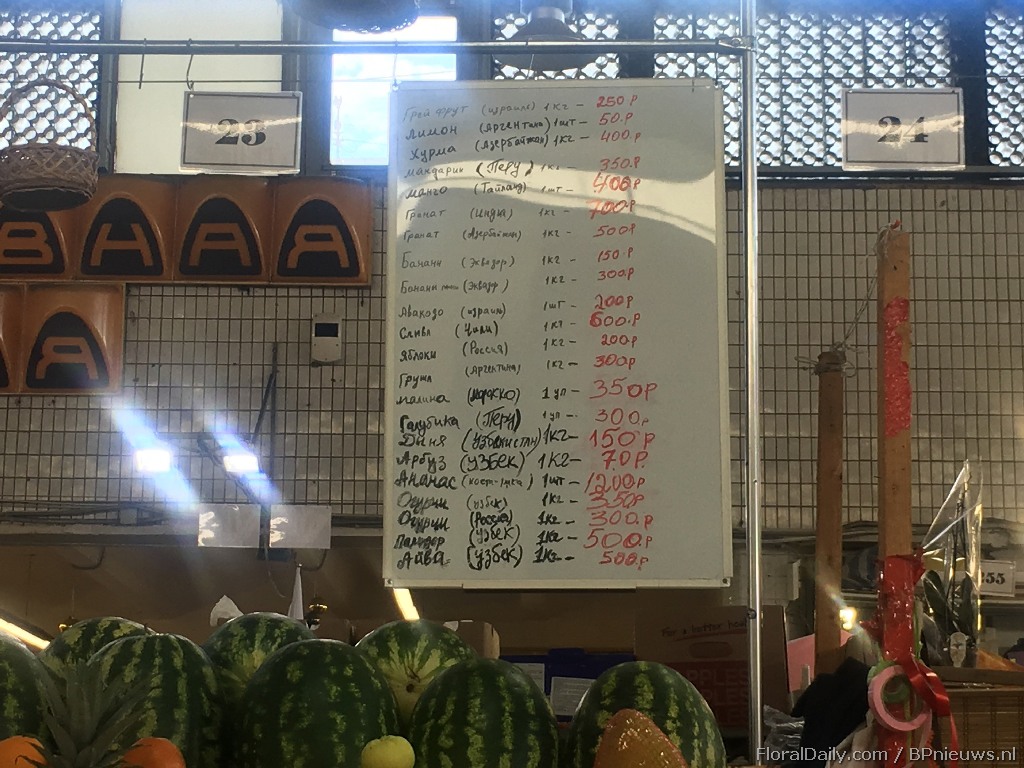 23
24
ВНАЯ
Я
Грейфрут (израиль) 1кг – 250 р
Лимон (Аргентина) 1шт – 50.р
Хурма (Азербайжан) 1кг – 400.р
мандарин (Перу) 1кг – 350.р
манго (Тайланд) 1шт – 400р
Гранат (Индия) 1кг – 700.р
Гранат (Азербайжан) 1кг – 500р
Бананы (Эквадор) 1кг – 150.р
Бананы (Эквадор) 1кг – 300р
Авакадо (израиль) 1шт – 200р
Слива (Чили) 1кг – 600.р
яблоки (Россия) 1кг – 200р
Груша (Аргентина) 1кг – 300р
малина (марокко) 1 уп – 350р
Галубика (Перу) 1 уп – 300.р
Дыня (узбекистан) 1кг – 150р
Арбуз (узбек) 1кг – 70р.
Ананас (кост-рика) 1шт – 1200.р
Огурцы (узбек) 1кг – 350р
Огурцы (Россия) 1кг – 300.р
Памидор (узбек) 1кг – 500.р
Айва (узбек) 1кг – 500.р
For a better
255
FloralDaily.com / BPnieuws.nl